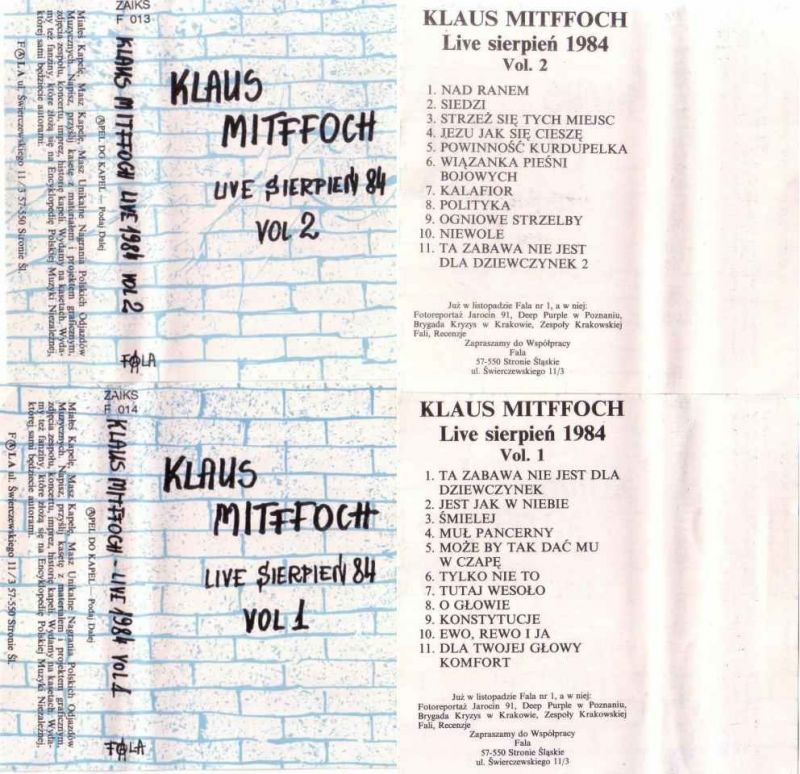 ZAIKS
F 013
KLAUS MITFFOCH LIVE 1984 VOL 2
FALA
KLAUS
MITFFOCH
LIVE SIERPIEŃ 84
VOL 2
APEL DO KAPEL — Podaj Dalej
Miałeś Kapelę, Masz Kapelę, Masz Unikalne Nagrania Polskich Odjazdów
Muzycznych. Napisz, przyślij kasetę z materiałem i projektem graficznym,
zdjęcia zespołu, koncertu, imprez, historię kapeli. Wydamy na kasetach. Wyda-
my też fanziny, które złożą się na Encyklopedię Polskiej Muzyki Niezależnej,
której sami będziecie autorami.
FALA ul. Świerczewskiego 11/3 57-550 Stronie Śl.
KLAUS MITFFOCH
Live sierpień 1984
Vol. 2
1. NAD RANEM
2. SIEDZI
3. STRZEŻ SIĘ TYCH MIEJSC
4. JEZU JAK SIĘ CIESZĘ
5. POWINNOŚĆ KURDUPELKA
6. WIĄZANKA PIEŚNI
BOJOWYCH
7. KALAFIOR
8. POLITYKA
9. OGNIOWE STRZELBY
10. NIEWOLE
11. TA ZABAWA NIE JEST
DLA DZIEWCZYNEK 2
Już w listopadzie Fala nr 1, a w niej:
Fotoreportaż Jarocin 91, Deep Purple w Poznaniu,
Brygada Kryzys w Krakowie, Zespoły Krakowskiej
Fali, Recenzje
Zapraszamy do Współpracy
Fala
57-550 Stronie Śląskie
ul. Świerczewskiego 11/3
ZAIKS
F 014
KLAUS MITFFOCH - LIVE 1984 VOL 1
FALA
KLAUS
MITFFOCH
LIVE SIERPIEŃ 84
VOL 1
APEL DO KAPEL — Podaj Dalej
Miałeś Kapelę, Masz Kapelę, Masz Unikalne Nagrania Polskich Odjazdów
Muzycznych. Napisz, przyślij kasetę z materiałem i projektem graficznym,
zdjęcia zespołu, koncertu, imprez, historię kapeli. Wydamy na kasetach. Wyda-
my też fanziny, które złożą się na Encyklopedię Polskiej Muzyki Niezależnej,
której sami będziecie autorami.
FALA ul. Świerczewskiego 11/3 57-550 Stronie Śl.
KLAUS MITFFOCH
Live sierpień 1984
Vol. 1
1. TA ZABAWA NIE JEST DLA
DZIEWCZYNEK
2. JEST JAK W NIEBIE
3. ŚMIELEJ
4. MUŁ PANCERNY
5. MOŻE BY TAK DAĆ MU
W CZAPĘ
6. TYLKO NIE TO
7. TUTAJ WESOŁO
8. O GŁOWIE
9. KONSTYTUCJE
10. EWO, REWO I JA
11. DLA TWOJEJ GŁOWY
KOMFORT
Już w listopadzie Fala nr 1, a w niej:
Fotoreportaż Jarocin 91, Deep Purple w Poznaniu,
Brygada Kryzys w Krakowie, Zespoły Krakowskiej
Fali, Recenzje
Zapraszamy do Współpracy
Fala
57-550 Stronie Śląskie
ul. Świerczewskiego 11/3